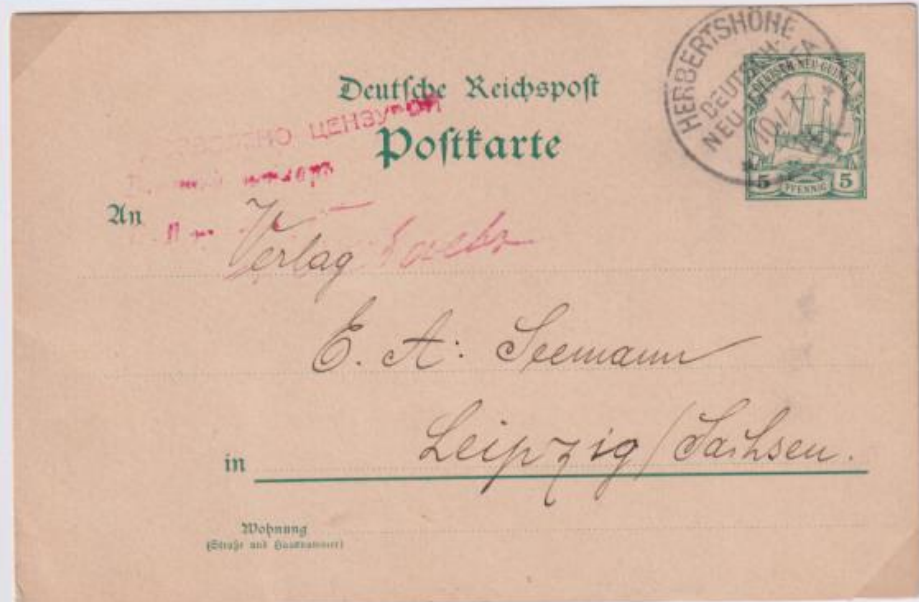 Deutsche Reichspost
Postkarte
HERBERTSHÖHE
DEUTSCH-
NEU-GUINEA
10/7
DEUTSCH-NEU-GUINEA
5 PFENNIG 5
ЦЕНЗУРОЙ
An Verlag
E. A. Seemann
in Leipzig/Sachsen.
Wohnung
(Straße und Hausnummer)